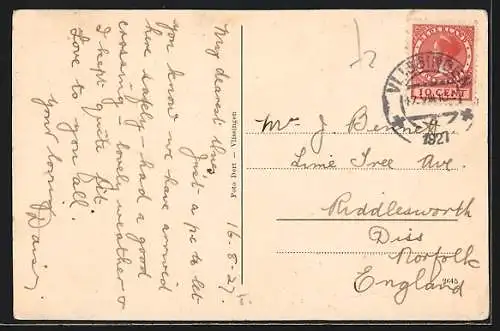 16-8-27.
My dearest Ones
Just a p.c. to let
you know we have arrived
here safely - had a good
crossing - lovely weather &
I kept quite fit
Love to you all.
your loving
Foto Dert - Vlissingen
NEDERLAND
10 CENT
VLISSINGEN
1927
Mr J. Bennett
Lime Tree Ave.
Riddlesworth
Diss
Norfolk
England